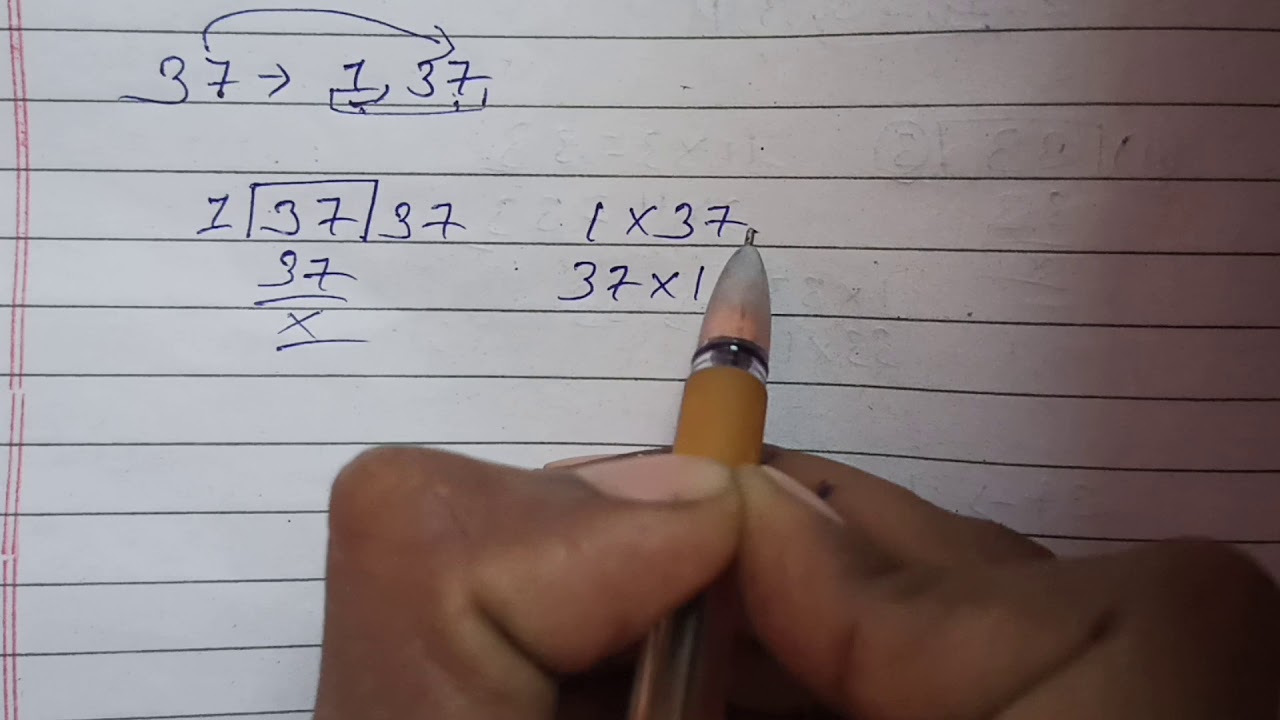 37 → 1, 37
1 37 37
37
x
1 x 37
37 x 1